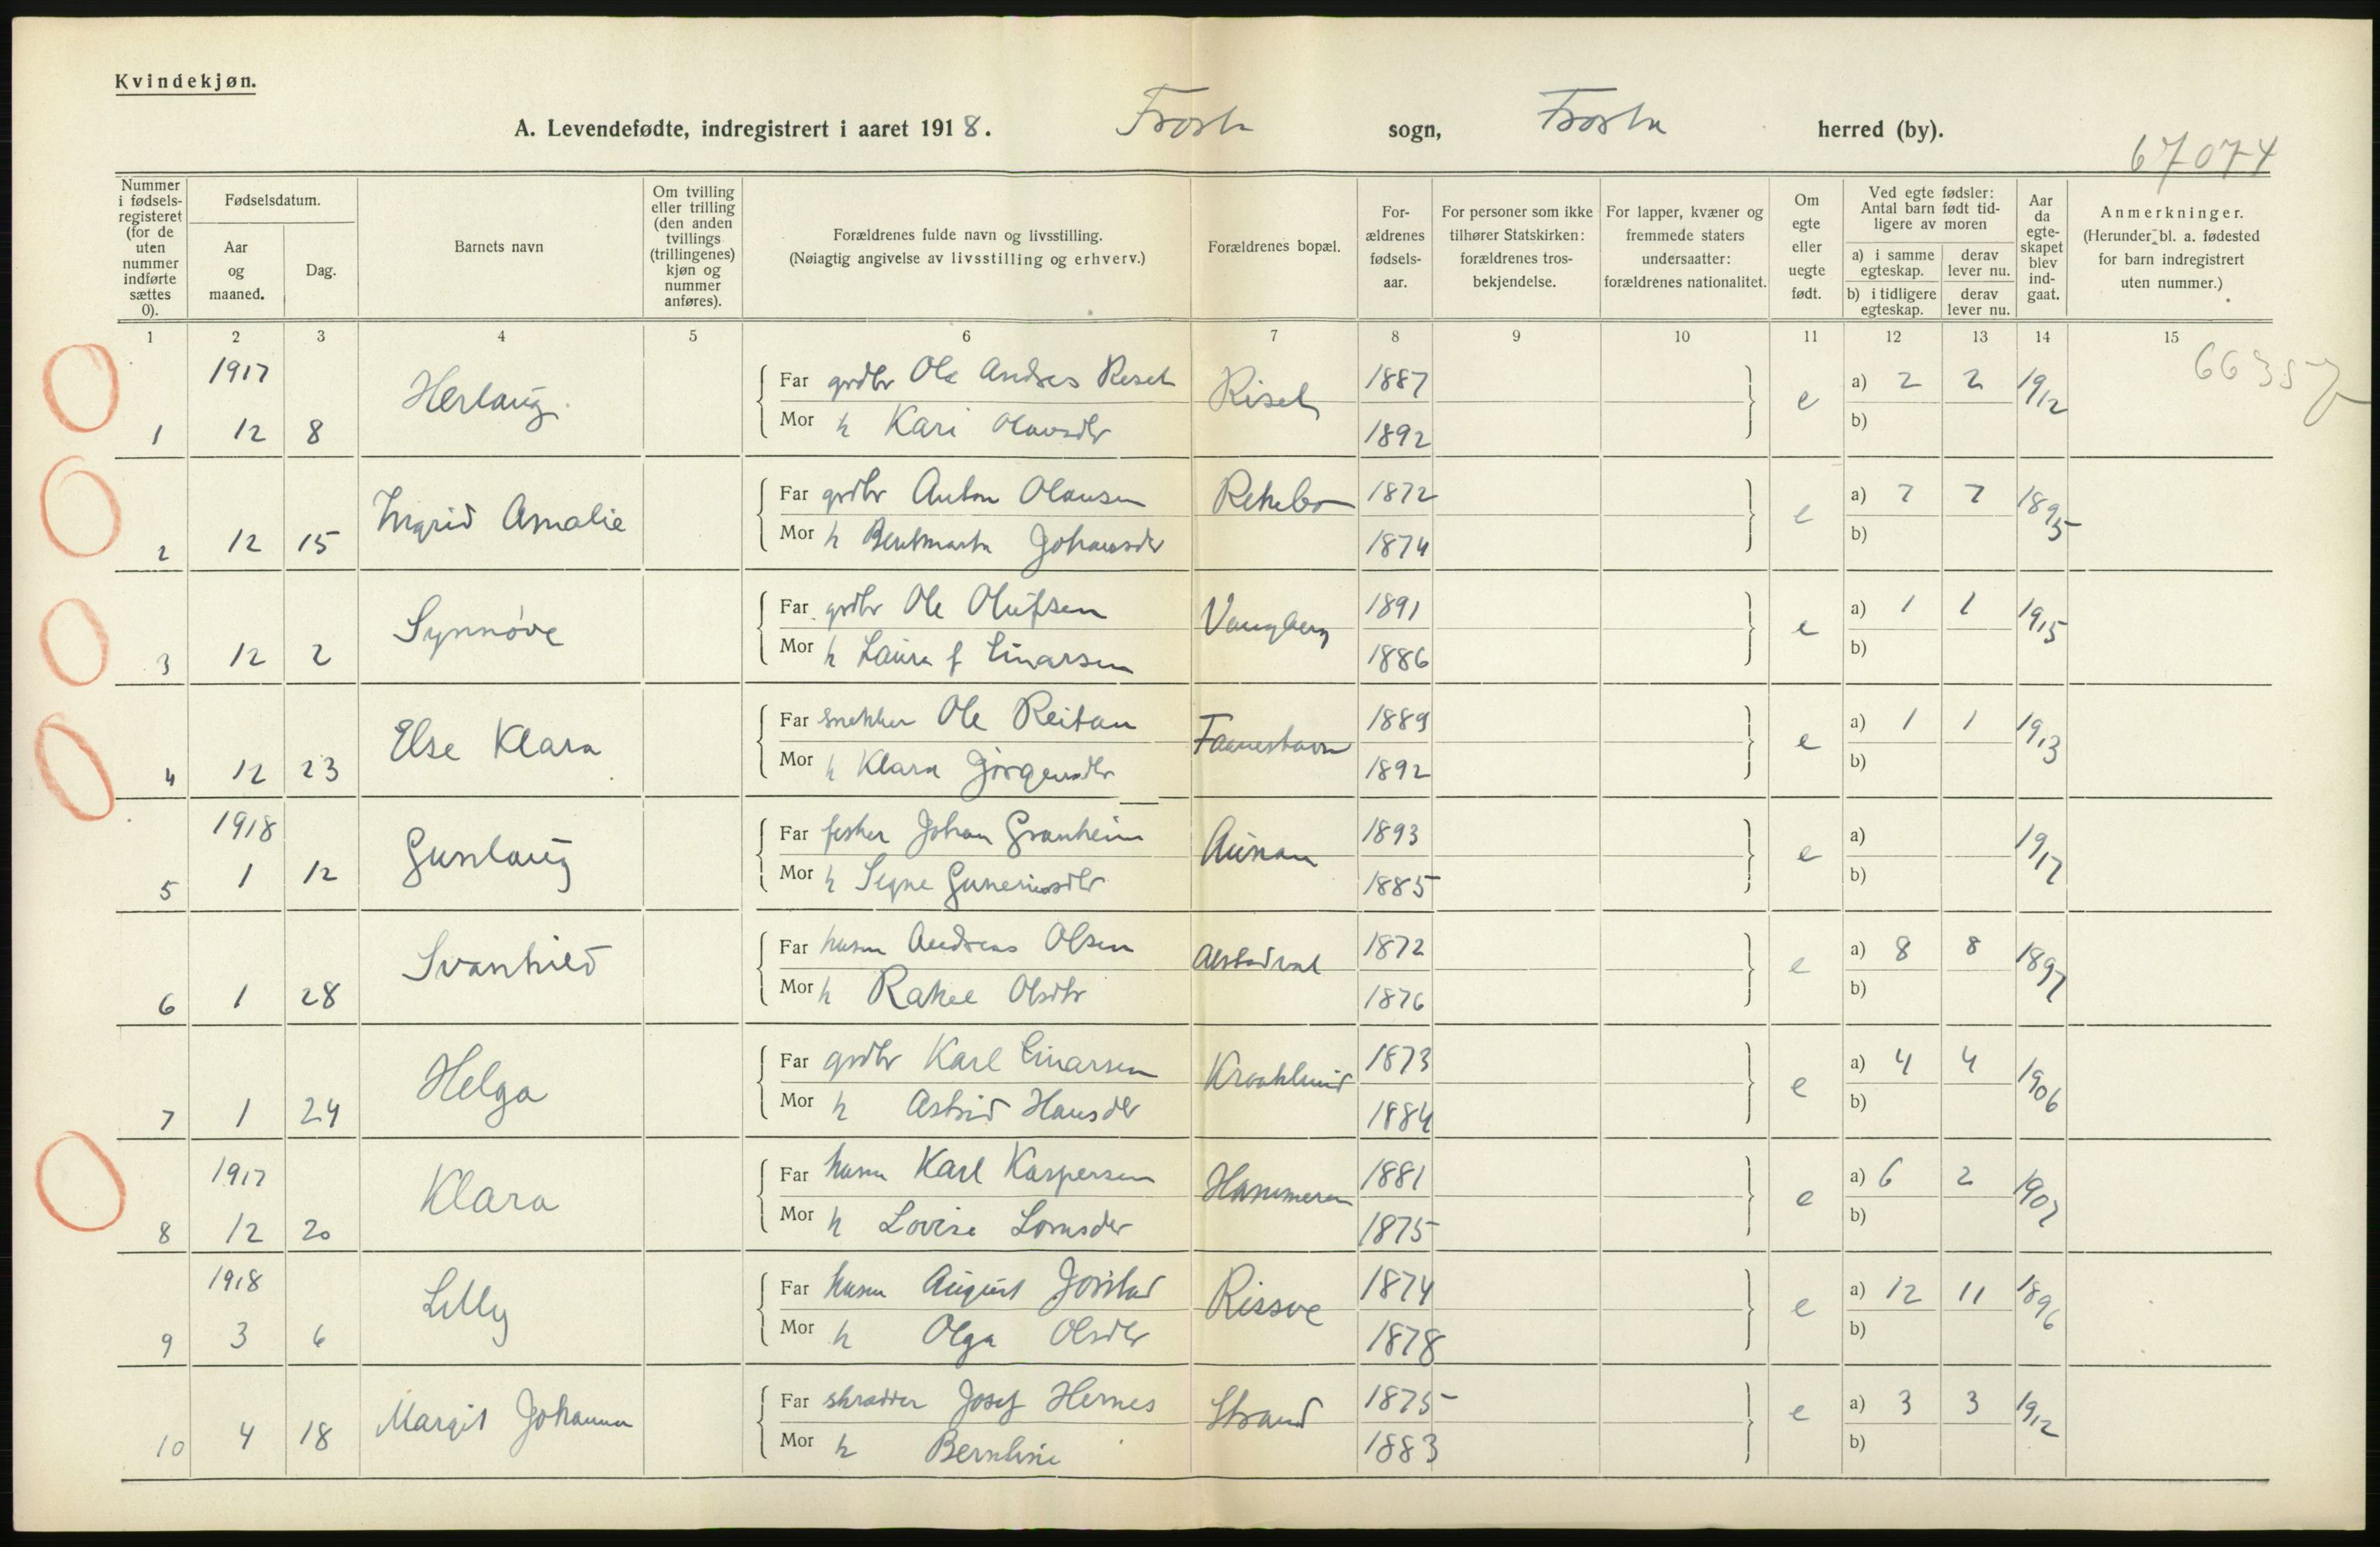 Kvindekjøn.
A. Levendefødte, indregistrert i aaret 1918. Frosta sogn, Frosta herred (by).
67074
Nummer i fødselsregisteret (for de uten nummer indførte sættes 0).
Fødselsdatum.
Aar og maaned.
Dag.
Barnets navn
Om tvilling eller trilling (den anden tvillings (trillingenes) kjøn og nummer anføres).
Forældrenes fulde navn og livsstilling.
(Nøiagtig angivelse av livsstilling og erhverv.)
Forældrenes bopæl.
Forældrenes fødselsaar.
For personer som ikke tilhører Statskirken: forældrenes trosbekjendelse.
For lapper, kvæner og fremmede staters undersaatter: forældrenes nationalitet.
Om egte eller uegte født.
Ved egte fødsler: Antal barn født tidligere av moren
a) i samme egteskap. derav lever nu.
b) i tidligere egteskap. derav lever nu.
Aar da egteskapet blev indgaat.
Anmerkninger.
(Herunder bl. a. fødested for barn indregistrert uten nummer.)
1 2 3 4 5 6 7 8 9 10 11 12 13 14 15
66357
1917
1 12 8 Herlaug
Far grdbr Ole Andres Reset Riset 1887 e a) 2 2 1912
Mor h Kari Olavsdtr 1892 b)
2 12 15 Ingrid Amalie
Far grdbr Anton Olausen 1872 e a) 7 7 1895
Mor h Johansdtr 1874 b)
3 12 2 Synnøve
Far grdbr Ole Olufsen Vangberg 1891 e a) 1 1 1915
Mor h Laura f Einarsen 1886 b)
4 12 23 Else Klara
Far snekker Ole Reitan 1889 e a) 1 1 1913
Mor h Klara Jørgensdtr 1892 b)
1918
5 1 12 Gunlaug
Far fisker Johan Granheim Aunan 1893 e a) 1917
Mor h Signe Guneriusdtr 1885 b)
6 1 28 Svanhild
Far husm Andreas Olsen 1872 e a) 8 8 1897
Mor h Rakel Olsdtr 1876 b)
7 1 24 Helga
Far grdbr Karl Einarsen 1873 e a) 4 4 1906
Mor h Astrid Hansdtr 1884 b)
1917
8 12 20 Klara
Far husm Karl Kaspersen Hammeren 1881 e a) 6 2 1907
Mor h Lovise 1875 b)
1918
9 3 6 Lilly
Far husm August Jørstad Rissve 1874 e a) 12 11 1896
Mor h Olga Olsdtr 1878 b)
10 4 18 Margit Johanna
Far skrædder Josef Hernes Strand 1875 e a) 3 3 1912
Mor h Berntine 1883 b)